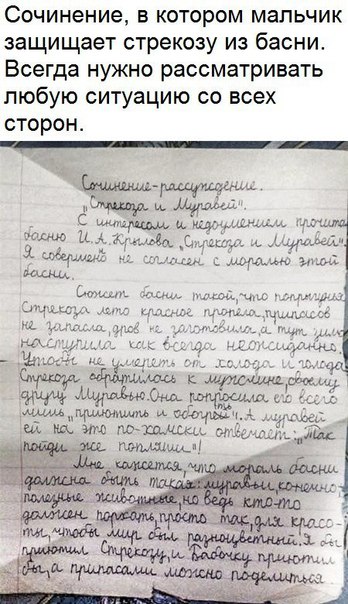 Сочинение, в котором мальчик
защищает стрекозу из басни.
Всегда нужно рассматривать
любую ситуацию со всех
сторон.
Сочинение-рассуждение.
"Стрекоза и Муравей".
С интересом и недоумением прочитал
басню И.А.Крылова "Стрекоза и Муравей".
Я совершено не согласен с моралью этой
басни.
Сюжет басни такой, что попрыгунья
Стрекоза лето красное пропела, припасов
не запасла, дров не заготовила, а тут зима
наступила как всегда неожиданно.
Чтобы не умереть от холода и голода
Стрекоза обратилась к мужчине, своему
другу Муравью. Она попросила его всего
лишь "приютить и обогреть". А муравей
ей на это по-хамски отвечает: "Так
пойди же попляши"!
Мне кажется, что мораль басни
должна быть такая: муравьи, конечно,
полезные животные, но ведь кто-то
должен порхать, просто так, для красо-
ты, чтобы мир был разноцветный. Я бы
приютил Стрекозу, и Бабочку приютил
бы, а припасами можно поделиться